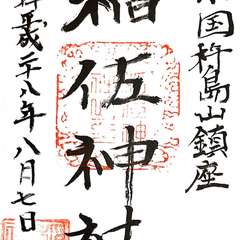 国杵島山鎮座
稲佐神社
平成二十八年八月七日